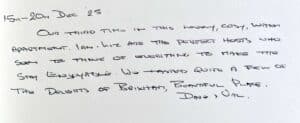 15th-20th Dec '25
Our third time in this lovely, cosy, warm
apartment. Ian & Liz are the perfect hosts who
seem to think of everything to make the
stay enjoyable. We tasted quite a few of
the delights of Brixham, beautiful place.
Doug & Val